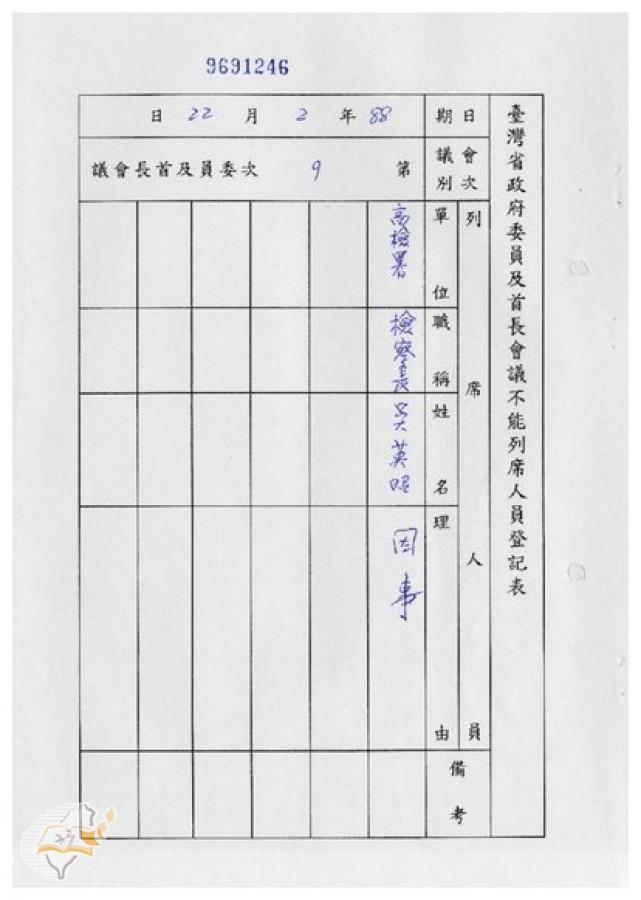 9691246
臺灣省政府委員及首長會議不能列席人員登記表
日期 88 年 2 月 22 日
會議次別 第 9 次委員及首長會議
列席人員
單位 高檢署
職稱 檢察長
姓名 吳英昭
理由 因事
備考